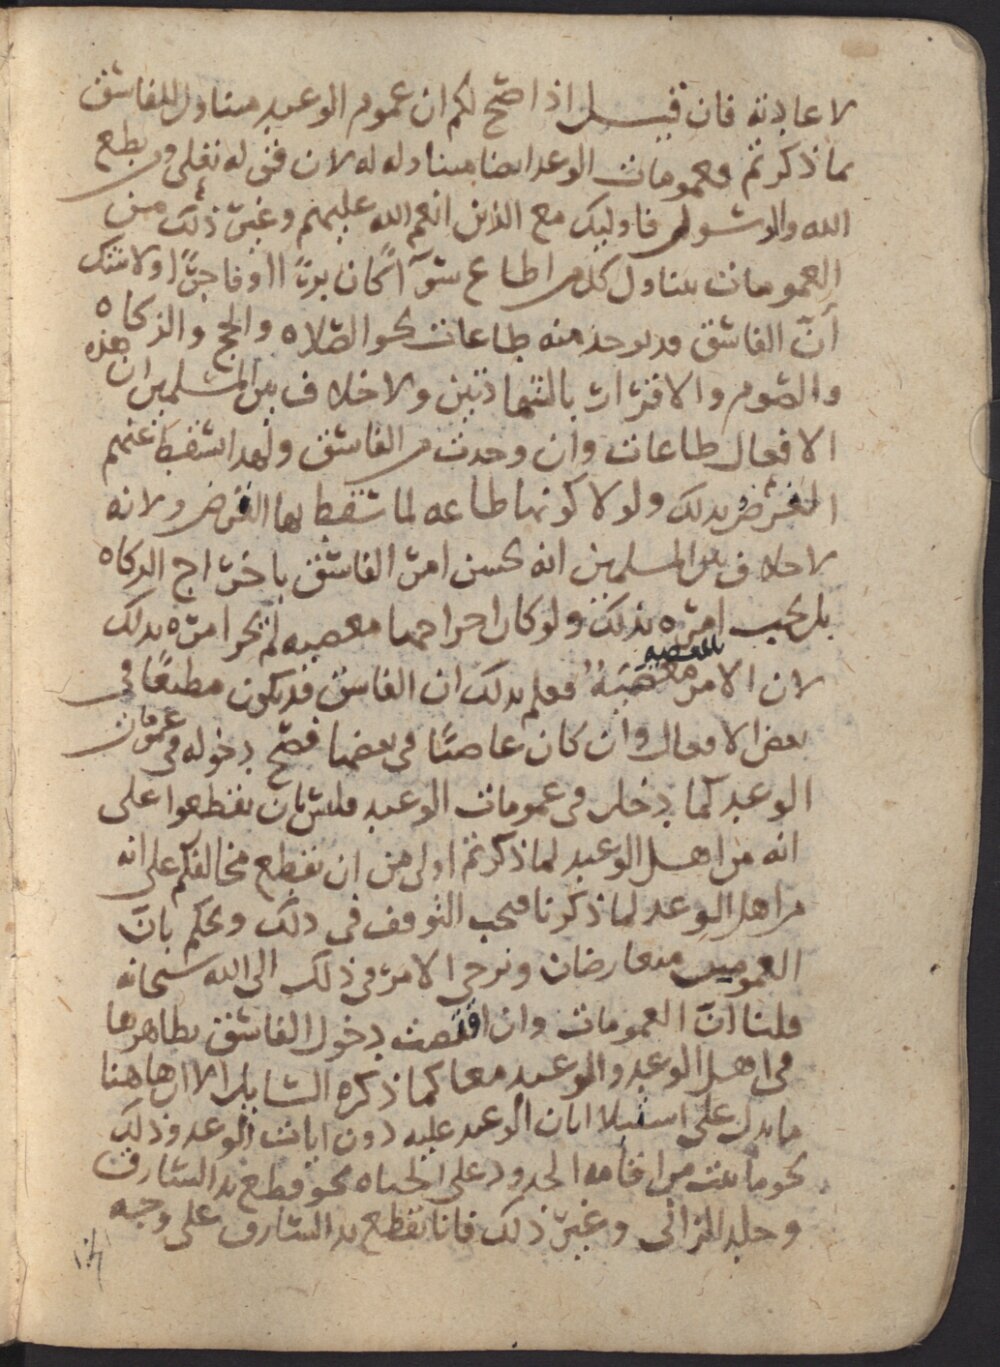 لا عادته فان قيل اذا صح لكم ان عموم الوعيد متناول للفاسق
بما ذكرتم فعمومات الوعد ايضا متناوله له لان قوله تعلى ومن يطع
الله والرسول فاوليك مع الذين انعم الله عليهم وغير ذلك من
العمومات يتناول كل من اطاع سوآ كان برًا او فاجرًا ولا شك
أنّ الفاسق قد يوجد منه طاعات نحو الصلاه والحج والزكاه
والصوم والاقرار بالشهادتين ولا خلاف بين المسلمين ان هذه
الافعال طاعات وان وجدت من الفاسق ولهذا اسقط عنهم
الفرض بذلك ولولا كونها طاعه لما سقط بها الفرض ولانه
لا خلاف بين المسلمين انه يحسن امر الفاسق باخراج الزكاه
بل يجب امره بذلك ولو كان اخراجها معصيه لم يجز امره بذلك
لان الامر بالمعصيه معصيةٌ فعلم بذلك ان الفاسق قد يكون مطيعًا في
بعض الافعال وان كان عاصيًا في بعضها فصح دخوله في عمومات
الوعد كما دخل في عمومات الوعيد فليس بان تقطعوا على
انه من اهل الوعيد لما ذكرتم اولى من ان يقطع مخالفكم على انه
من اهل الوعد لما ذكرنا فيجب التوقف في ذلك ونحكم بانّ
العمومين متعارضان ونرجي الامر في ذلك الى الله سبحانه
قلنا انّ العمومات وان اقتضت دخول الفاسق بظاهرها
في اهل الوعد والوعيد معا كما ذكره السايل الا ان هاهنا
ما يدل على استيلا ايات الوعيد عليه دون ايات الوعد وذلك
نحو ما ثبت من اقامه الحدود على الجناه نحو قطع يد السارق
وجلد الزاني وغير ذلك فانا نقطع يد السارق على وجه